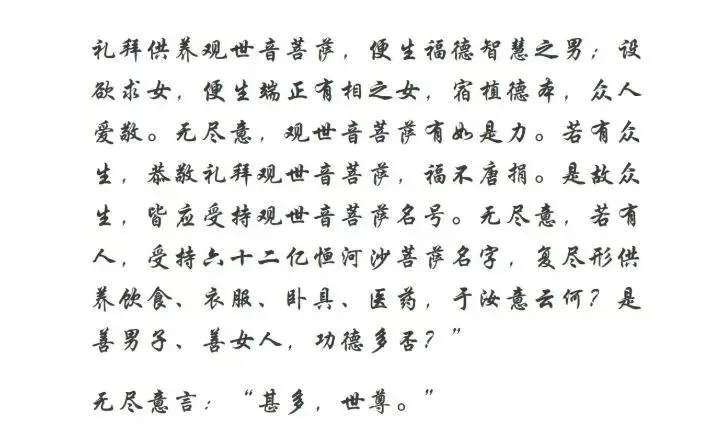 礼拜供养观世音菩萨，便生福德智慧之男；设
欲求女，便生端正有相之女，宿植德本，众人
爱敬。无尽意，观世音菩萨有如是力。若有众
生，恭敬礼拜观世音菩萨，福不唐捐。是故众
生，皆应受持观世音菩萨名号。无尽意，若有
人，受持六十二亿恒河沙菩萨名字，复尽形供
养饮食、衣服、卧具、医药，于汝意云何？是
善男子、善女人，功德多否？”
无尽意言：“甚多，世尊。”